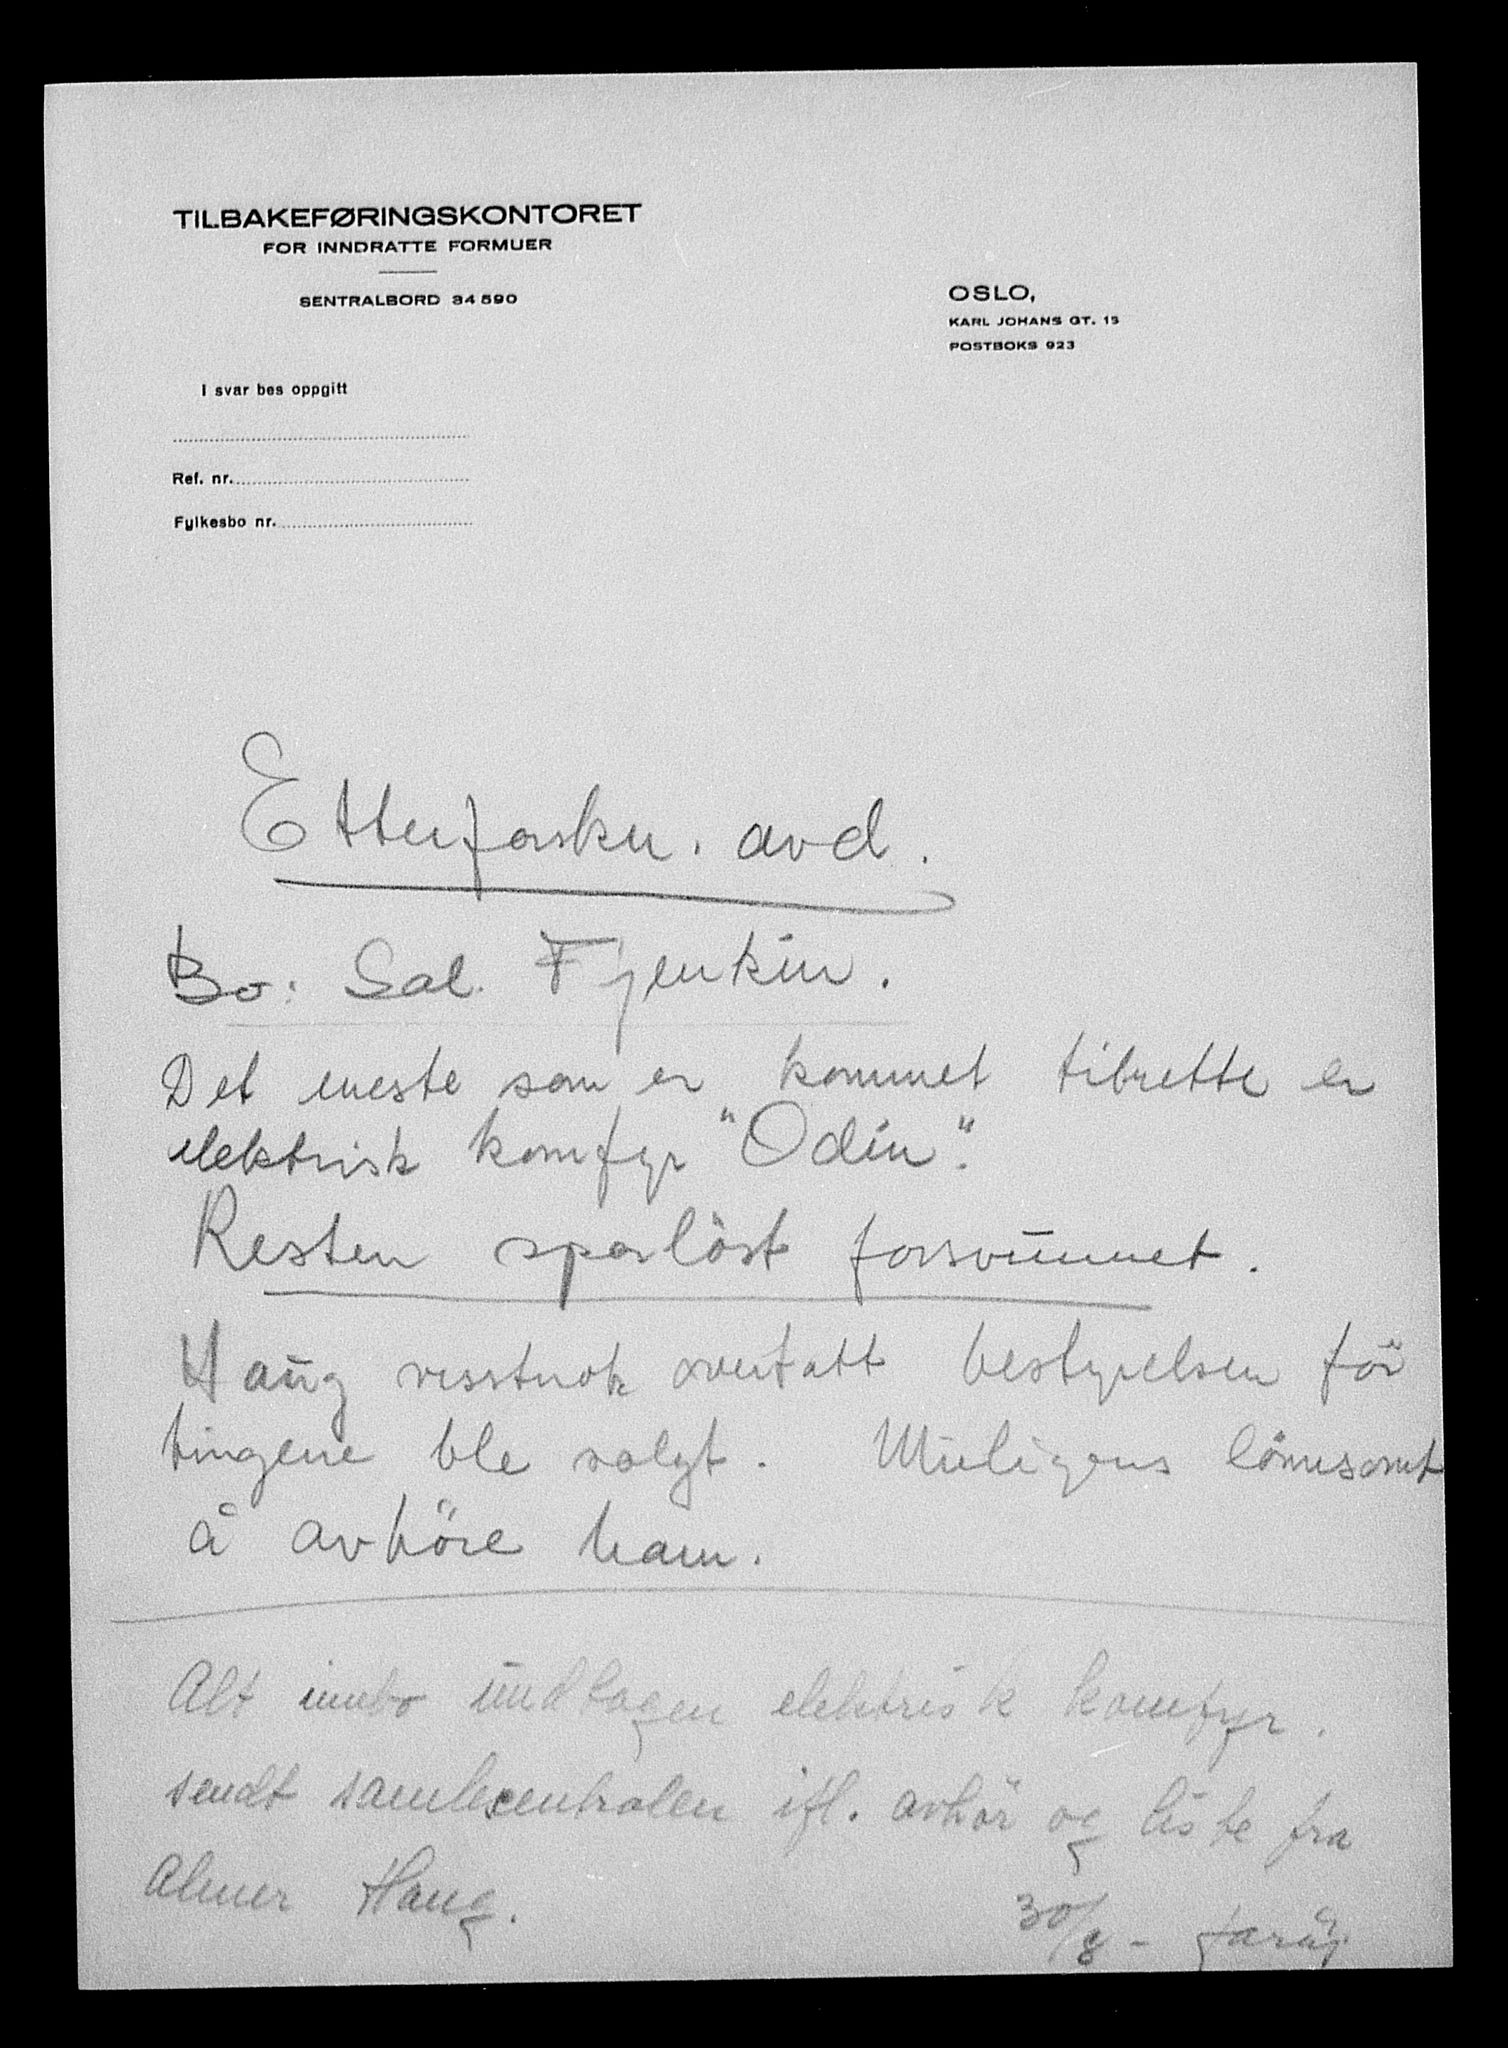 TILBAKEFØRINGSKONTORET
FOR INNDRATTE FORMUER
SENTRALBORD 34590
OSLO,
KARL JOHANS GT. 15
POSTBOKS 923
I svar bes oppgitt
Ref. nr.
Fylkesbo nr.
Etterforskn. avd.
Bo: Sal. Fjenkin.
Det eneste som er kommet tilrette er
elektrisk komfyr "Odin".
Resten sporlöst forsvunnet.
Haug visstnok overtatt bestyrelsen för
tingene ble solgt. Muligens lönnsomt
å avhöre ham.
Alt innbo undtagen elektrisk komfyr.
sendt samlecentralen ifl. avhör og liste fra
Almer Haug.
30/8 -